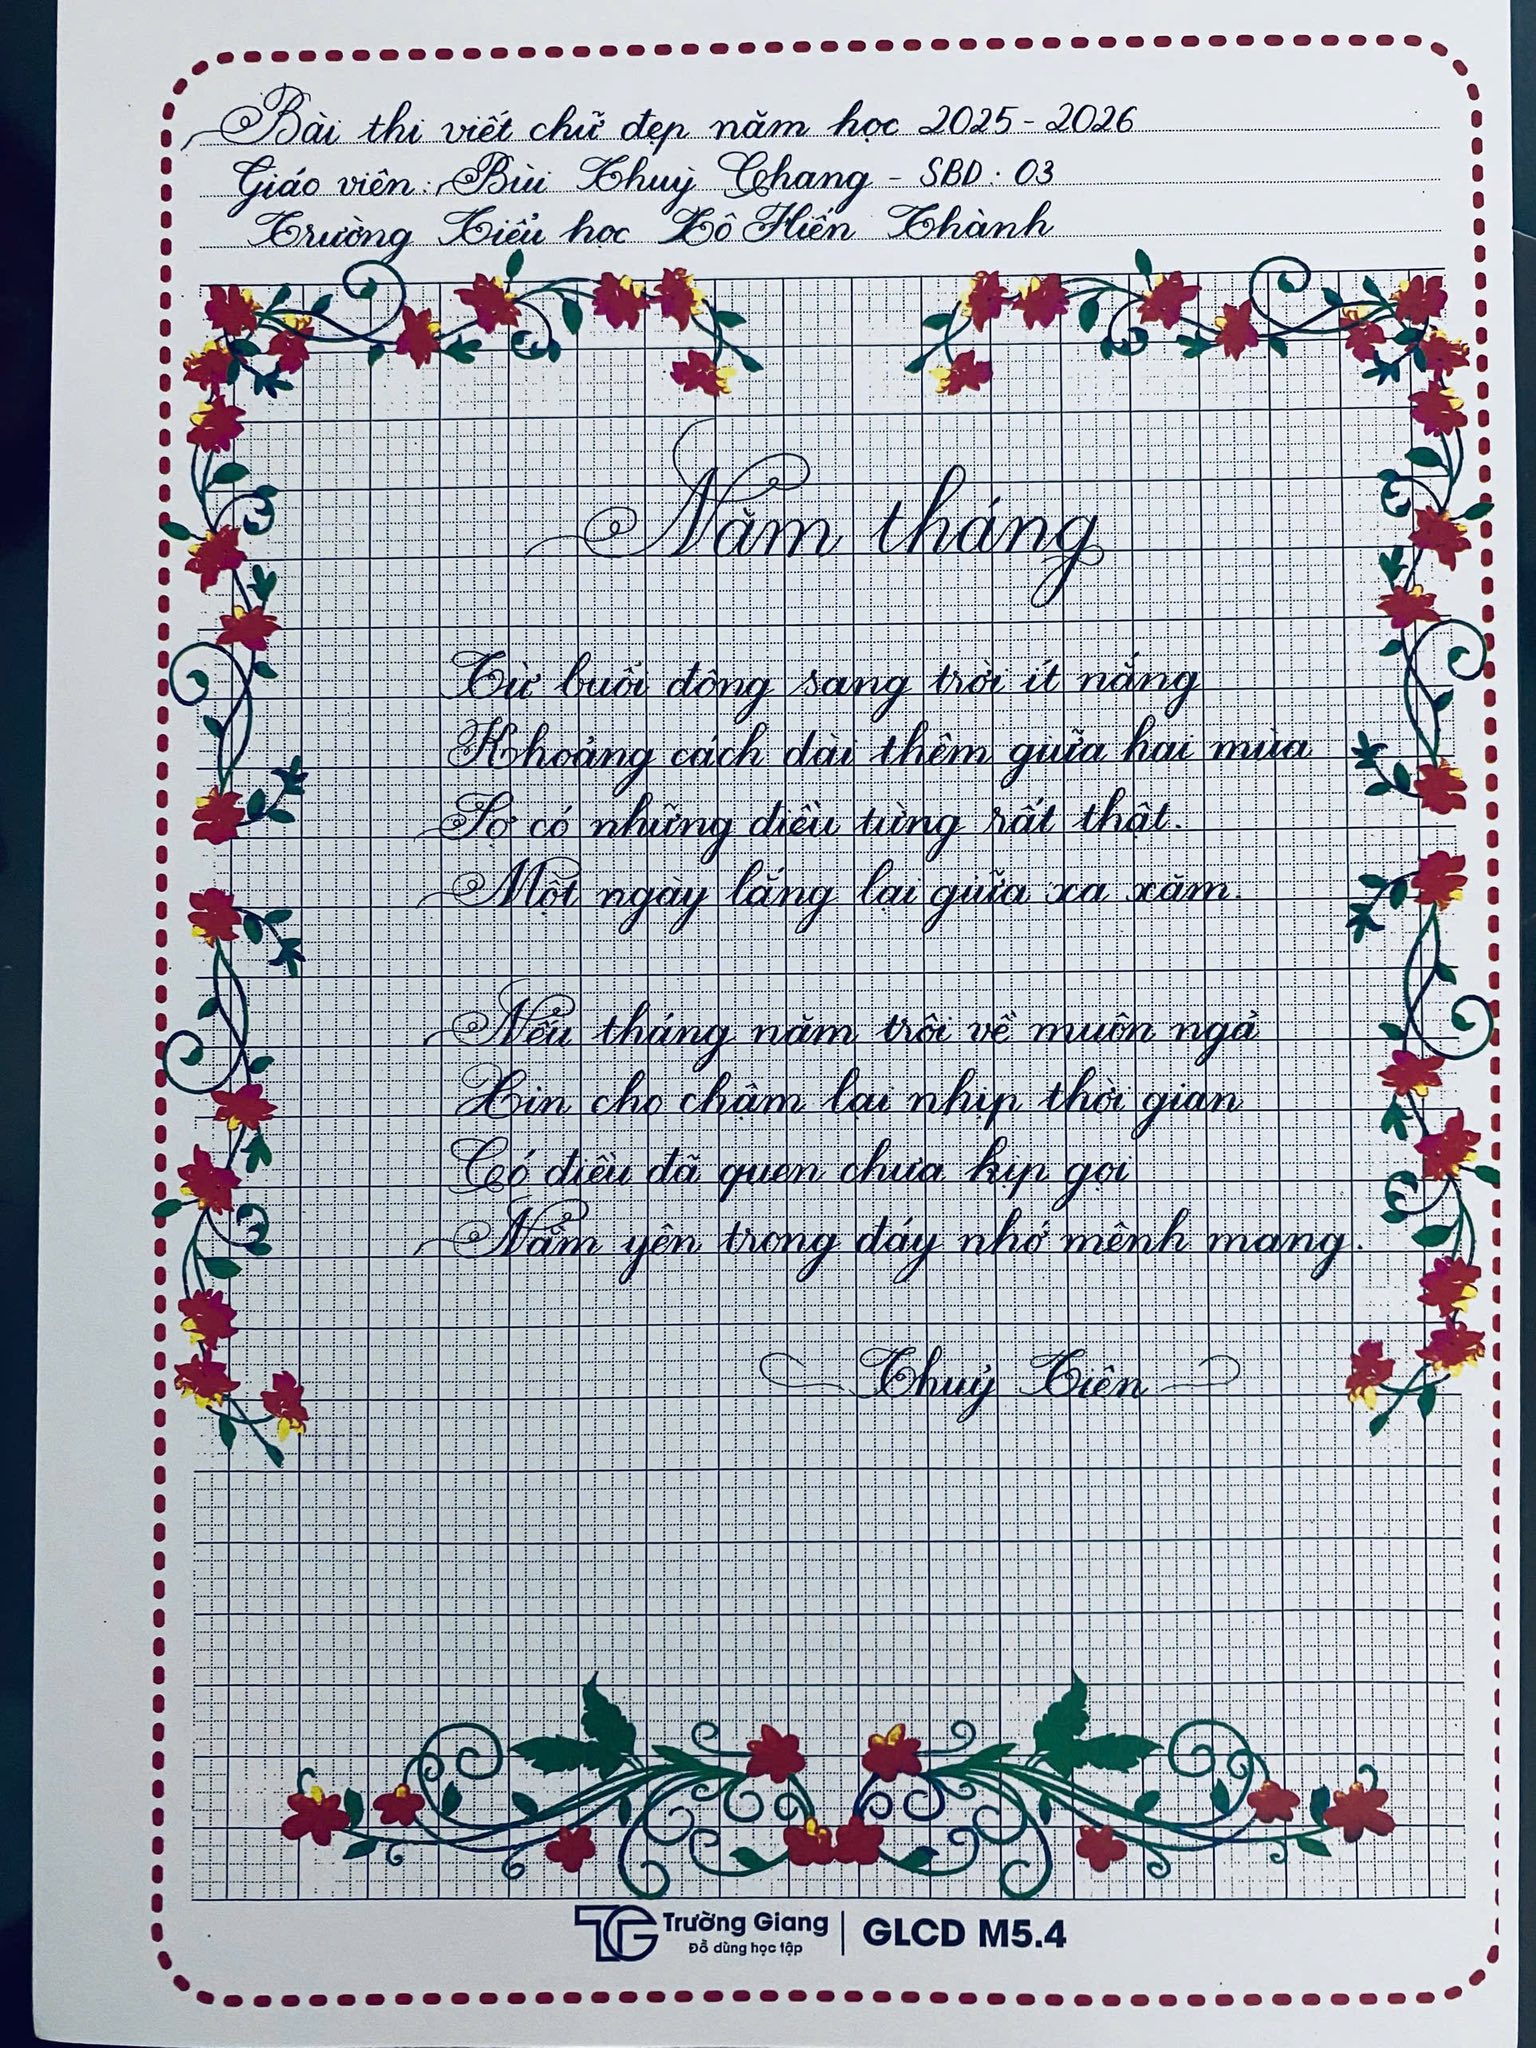 Bài thi viết chữ đẹp năm học 2025 - 2026
Giáo viên: Bùi Thuỳ Chang - SBD: 03
Trường Tiểu học Tô Hiến Thành
Năm tháng
Từ buổi đông sang trời ít nắng
Khoảng cách dài thêm giữa hai mùa
Sợ có những điều từng rất thật.
Một ngày lắng lại giữa xa xăm.
Nếu tháng năm trôi về muôn ngả
Xin cho chậm lại nhịp thời gian
Có điều đã quen chưa kịp gọi
Nằm yên trong đáy nhớ mênh mang.
Thuỷ Tiên
TG Trường Giang | GLCD M5.4
Đồ dùng học tập